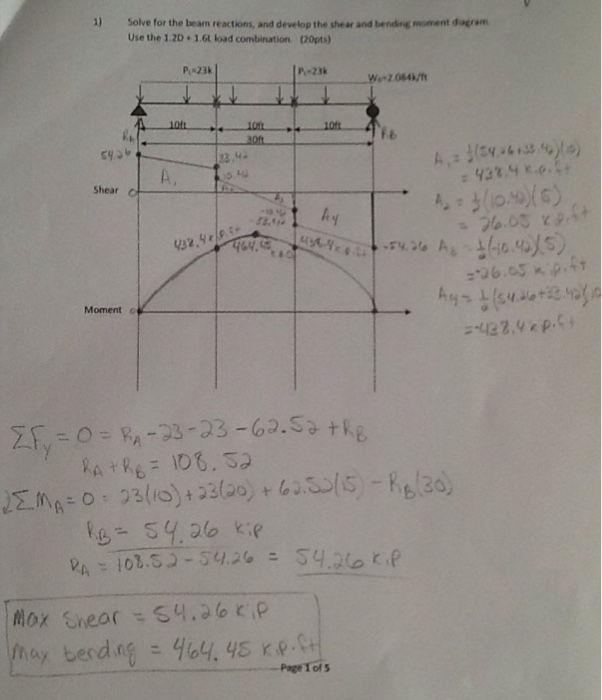 1) Solve for the beam reactions, and develop the shear and bending moment diagram.
Use the 1.2D + 1.6L load combination. (20pts)
P₁=23k P₁=23k W₀=2.084k/ft
10ft 10ft 10ft
30ft
RA RB
54.26 33.42
A₁ 10.42
Shear 0
-10.42
-33.42 A4 -54.26
438.4 kip.ft 464.45 438.4 kip.ft
Moment 0
A₁ = ½(54.26+33.42)(10)
= 438.4 kip.ft
A₂ = ½(10.42)(5)
= 26.05 kip.ft
A₃ = ½(-10.42)(5)
= -26.05 kip.ft
A4 = ½(54.26+33.42)(10
= -438.4 kip.ft
ΣFy = 0 = RA - 23 - 23 - 62.52 + RB
RA + RB = 108.52
ΣMA = 0 = 23(10) + 23(20) + 62.52(15) - RB(30)
RB = 54.26 kip
RA = 108.52 - 54.26 = 54.26 kip
Max Shear = 54.26 kip
Max bending = 464.45 kip.ft
Page 1 of 5